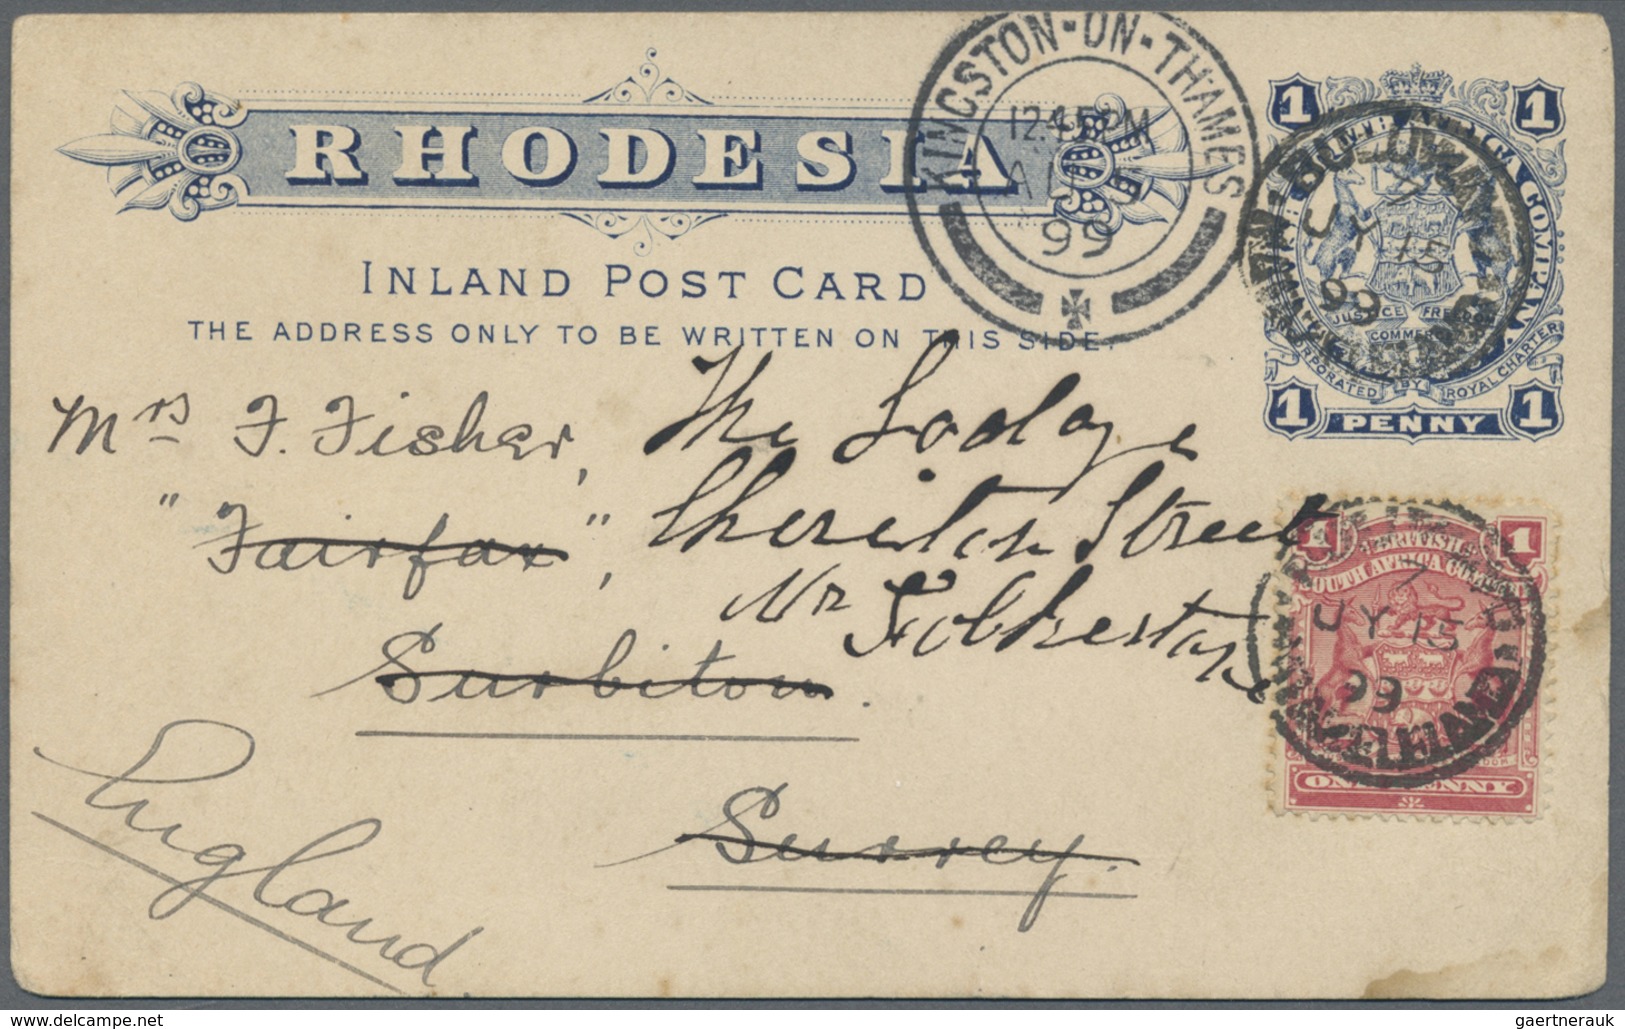 RHODESIA
INLAND POST CARD
THE ADDRESS ONLY TO BE WRITTEN ON THIS SIDE.
KINGSTON-ON-THAMES
12.45PM
AU 5
99
1 1
COMPANY
JUSTICE FREEDOM
COMMERCE
INCORPORATED BY ROYAL CHARTER
1 PENNY 1
BULUWAYO
7
JY 15
99
MATABELELAND
Mrs F. Fisher, The Lodge
"Fairfax", Cheriton Street
Nr Folkestone
Surbiton.
Surrey.
England
1 1
SOUTH AFRICA COMPANY
7
JY 15
99
ONE PENNY
www.delcampe.net
gaertnerauk